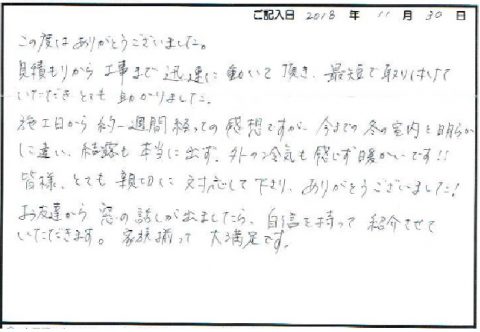 ご記入日 2018 年 11 月 30 日
この度はありがとうございました。
見積もりから工事まで迅速に動いて頂き、最短で取り付けて
いただきとても助かりました。
施工日から約一週間経っての感想ですが、今までの冬の室内と明らか
に違い、結露も本当に出ず、外の冷気も感じず暖かいです!!
皆様、とても親切に対応して下さり、ありがとうございました!
お友達から窓の話しが出ましたら、自信を持って紹介させて
いただきます。家族揃って大満足です。